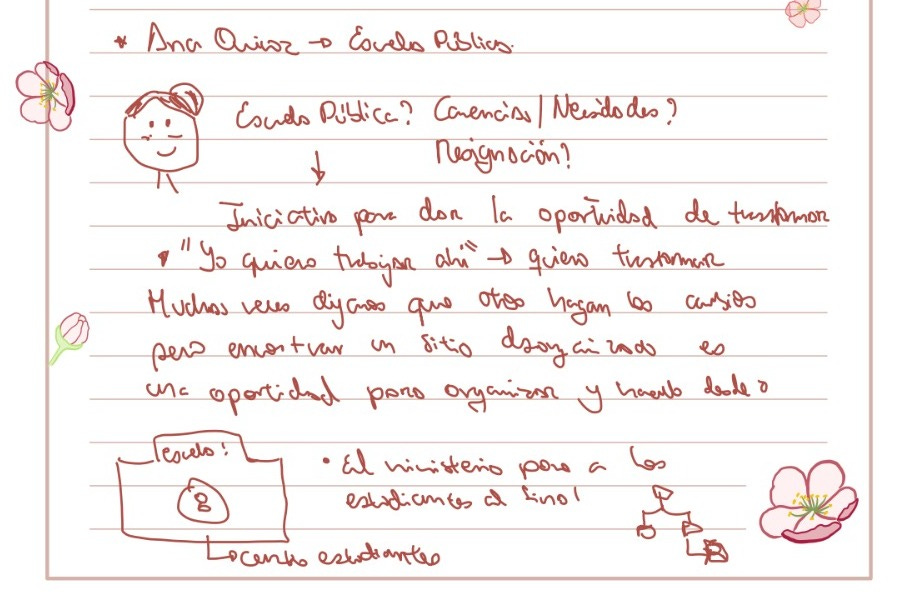 * Ana Quiroz → Escuela Pública.
Escuela Pública? Carencias / Necesidades?
Resignación?
Iniciativa para dar la oportunidad de transformar
"Yo quiero trabajar ahí" → quiero transformar
Muchas veces dejamos que otros hagan los cambios
pero encontrar un sitio desorganizado es
una oportunidad para organizar y hacerlo desde 0
escuela:
• El ministerio pone a los
estudiantes al final
centro estudiantes